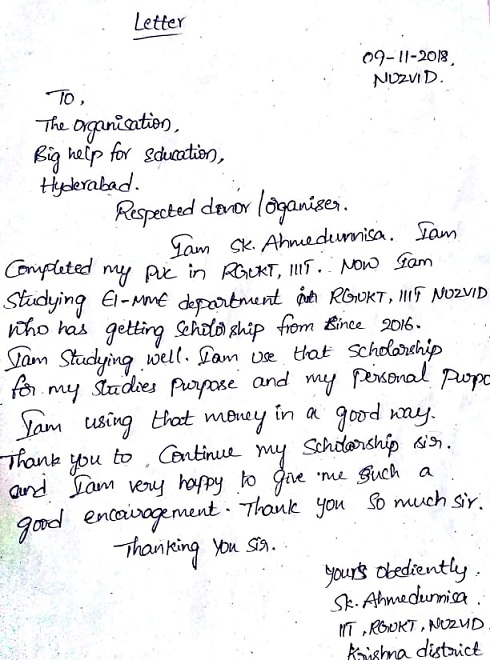 Letter
09-11-2018,
NUZVID.
To,
The Organisation,
Big help for education,
Hyderabad.
Respected donor/oganiser.
Iam Sk. Ahmedunnisa. Iam
Completed my PUC in RGUKT, IIIT. Now Iam
Studying E1-MME department in RGUKT, IIIT NUZVID
who has getting Scholorship from Since 2016.
Iam Studying well. Iam use that Scholarship
for my Studies Purpose and my Personal Purpo
Iam using that money in a good way.
Thank you to Continue my Scholarship sir.
and Iam very happy to give me Such a
good encouragement. Thank you So much sir.
Thanking You Sir.
Yours obediently.
Sk. Ahmedunnisa.
IIT, RGUKT, NUZVID
Krishna district